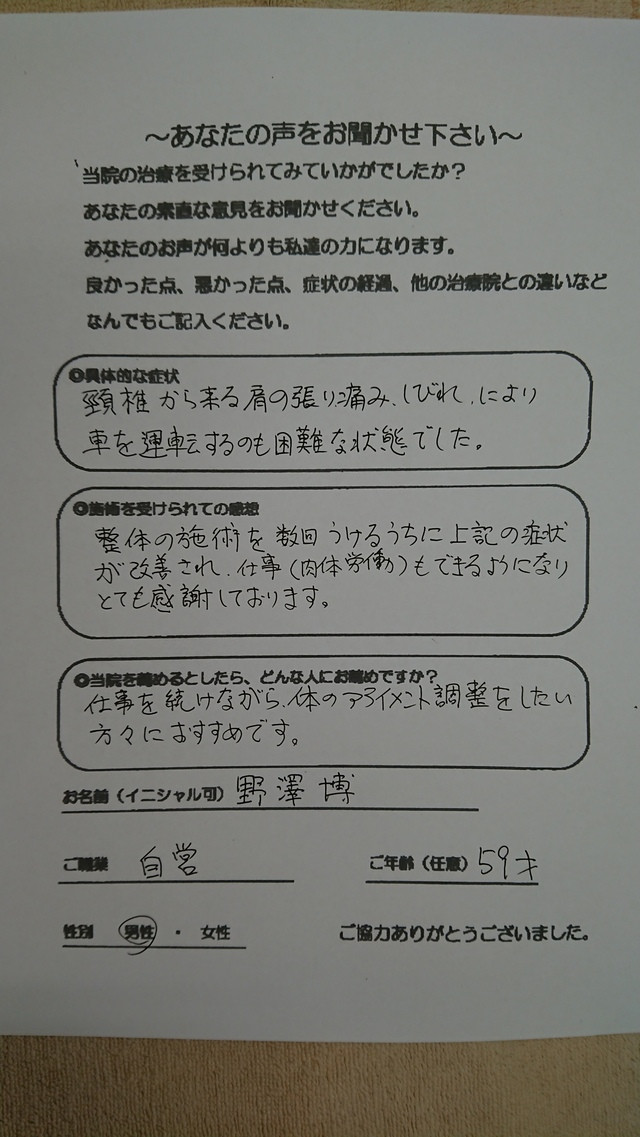 ～あなたの声をお聞かせ下さい～
当院の治療を受けられてみていかがでしたか？
あなたの素直な意見をお聞かせください。
あなたのお声が何よりも私達の力になります。
良かった点、悪かった点、症状の経過、他の治療院との違いなど
なんでもご記入ください。
✪具体的な症状
頸椎から来る肩の張り痛み、しびれ、により
車を運転するのも困難な状態でした。
✪施術を受けられての感想
整体の施術を数回うけるうちに上記の症状
が改善され、仕事（肉体労働）もできるようになり
とても感謝しております。
✪当院を薦めるとしたら、どんな人にお薦めですか？
仕事を続けながら、体のアライメント調整をしたい
方々におすすめです。
お名前（イニシャル可） 野澤 博
ご職業 自営 ご年齢（任意） 59才
性別 男性 ・ 女性 ご協力ありがとうございました。